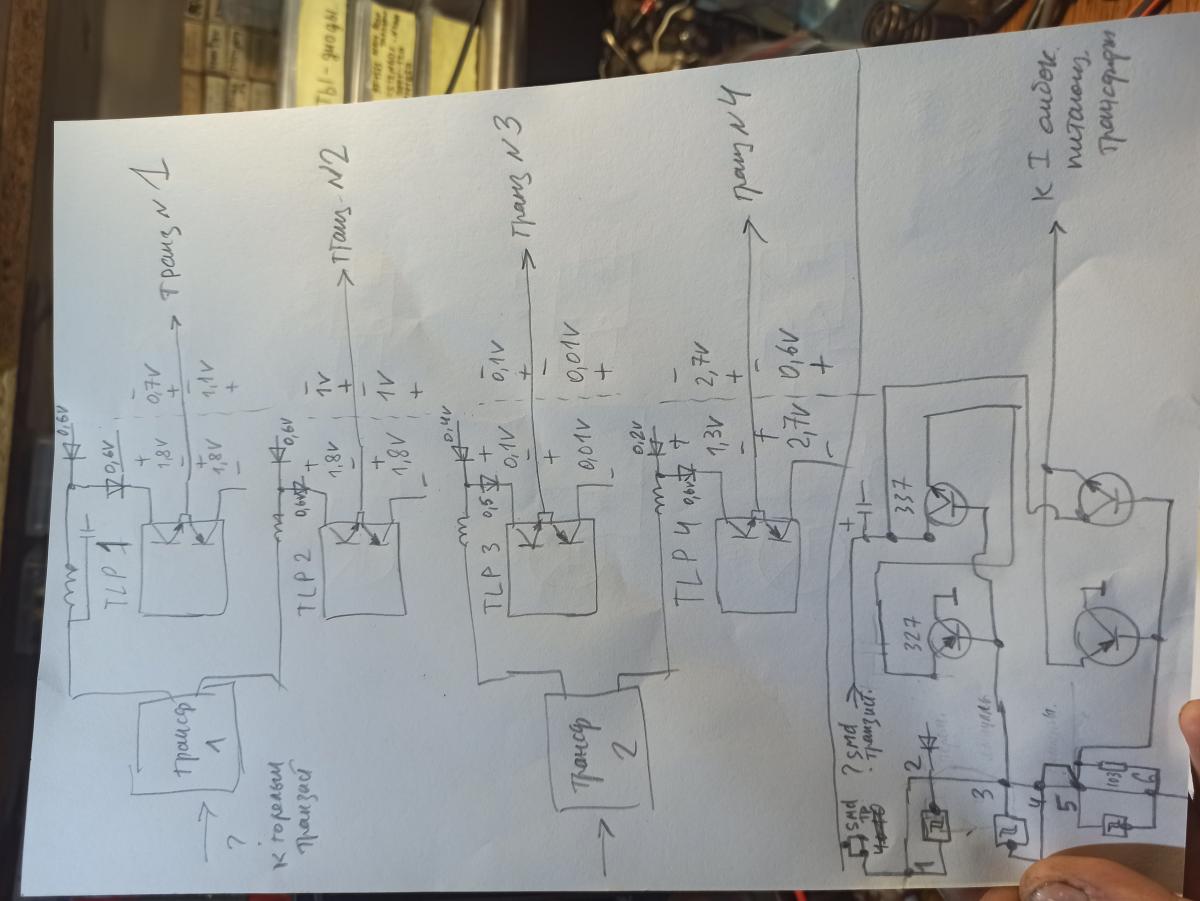 ТЫ-диоды
0,6V
0,6V
TLP 1
+
1,8V
-
+
1,8V
-
-
0,7V
+
-
1,1V
+
Транз N 1
трансф
1
?
К горелым
транзис
0,6V
0,6V
TLP 2
+
1,8V
-
+
1,8V
-
-
1V
+
-
1V
+
N2
0,4V
0,5
TLP 3
+
0,1V
-
+
0,01V
-
-
0,1V
+
-
0,01V
+
Транз N 3
Трансф
2
0,2V
0,6V
TLP 4
+
1,3V
-
+
2,7V
-
-
2,7V
+
-
0,6V
+
транз N 4
? SMD
транзис.
SMD
тр
+
337
327
1
2
3
4
5
6
103
К I
питающ.
трансформ